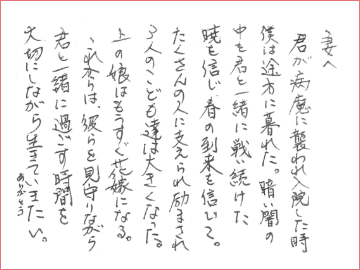 妻へ
君が病魔に襲われ入院した時
僕は途方に暮れた。暗い闇の
中を君と一緒に戦い続けた
暁を信じ春の到来を信じて。
たくさんの人に支えられ励まされ
3人のこども達は大きくなった。
上の娘はもうすぐ花嫁になる。
これからは、彼らを見守りながら
君と一緒に過ごす時間を
大切にしながら生きていきたい。
ありがとう